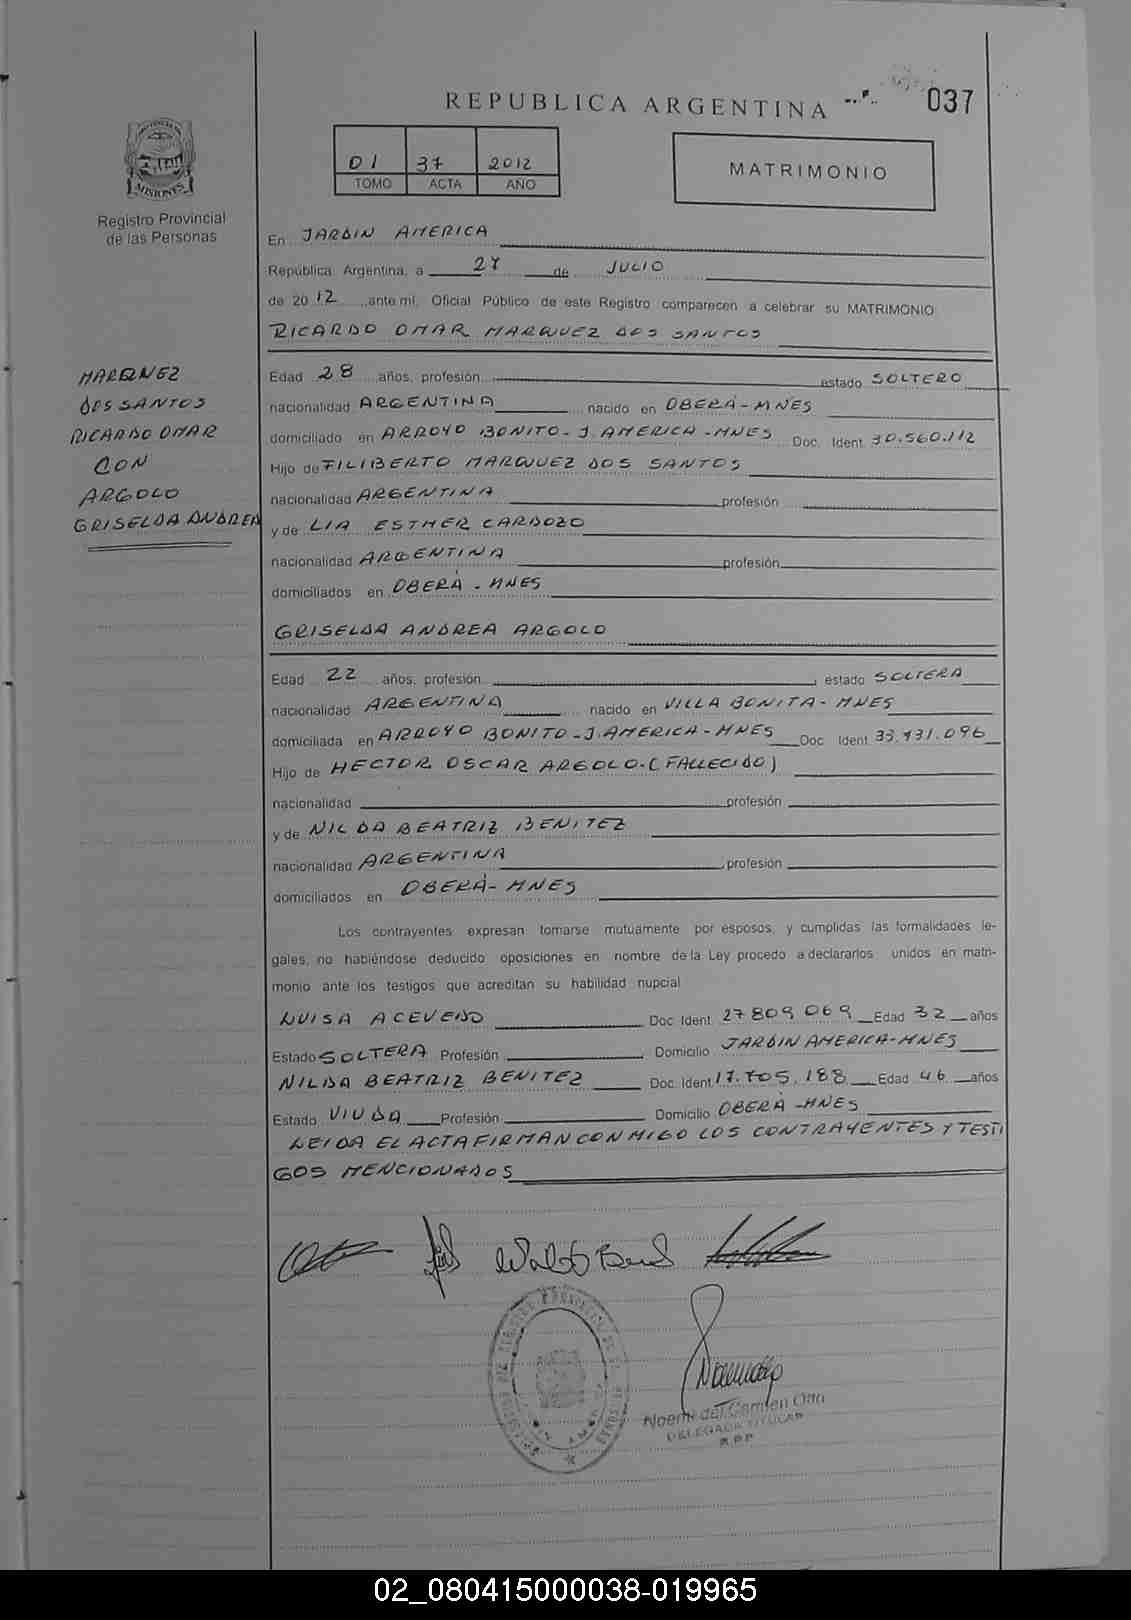 REPUBLICA ARGENTINA
037
01 37 2012
TOMO ACTA AÑO
MATRIMONIO
PROVINCIA DE
MISIONES
Registro Provincial
de las Personas
En JARDIN AMERICA
República Argentina, a 27 de JULIO
de 2012 ante mí, Oficial Público de este Registro comparecen a celebrar su MATRIMONIO
RICARDO OMAR MARQUEZ DOS SANTOS
MARQUEZ
DOS SANTOS
RICARDO OMAR
CON
ARGOLO
GRISELDA ANDREA
Edad 28 años, profesión estado SOLTERO
nacionalidad ARGENTINA nacido en OBERÁ-MNES
domiciliado en ARROYO BONITO-J.AMERICA-MNES Doc. Ident. 30.560.112
Hijo de FILIBERTO MARQUEZ DOS SANTOS
nacionalidad ARGENTINA profesión
y de LIA ESTHER CARDOZO
nacionalidad ARGENTINA profesión
domiciliados en OBERÁ-MNES
GRISELDA ANDREA ARGOLO
Edad 22 años, profesión estado SOLTERA
nacionalidad ARGENTINA nacido en VILLA BONITA-MNES
domiciliada en ARROYO BONITO-J.AMERICA-MNES Doc. Ident.
Hijo de HECTOR OSCAR ARGOLO-(FALLECIDO)
nacionalidad profesión
y de NILDA BEATRIZ BENITEZ
nacionalidad ARGENTINA profesión
domiciliados en OBERÁ-MNES
Los contrayentes expresan tomarse mutuamente por esposos, y cumplidas las formalidades le-
gales, no habiéndose deducido oposiciones en nombre de la Ley procedo a declararlos unidos en matri-
monio ante los testigos que acreditan su habilidad nupcial
LUISA ACEVEDO Doc. Ident. 27809069 Edad 32 años
Estado SOLTERA Profesión Domicilio JARDIN AMERICA-MNES
NILDA BEATRIZ BENITEZ Doc. Ident. 17.705.188 Edad 46 años
Estado VIUDA Profesión Domicilio OBERÁ-MNES
LEIDA EL ACTA FIRMAN CONMIGO LOS CONTRAYENTES Y TESTI
GOS MENCIONADOS
Noemi del Carmen Otto
DELEGADA TITULAR
R.P.P.
02_080415000038-019965